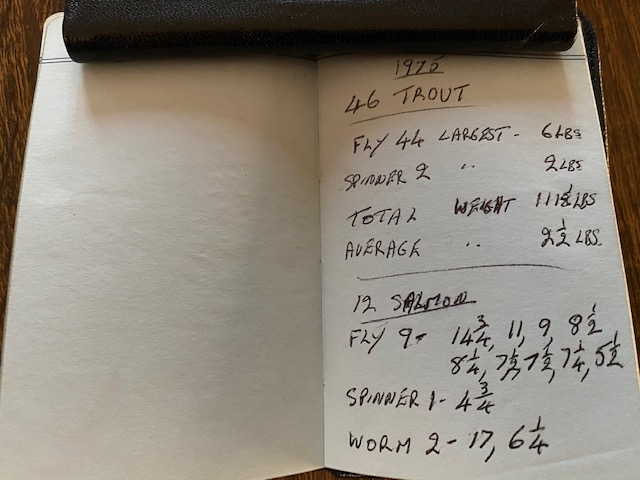 1975
46 TROUT
FLY 44 LARGEST - 6 LBS
SPINNER 2 " 2 LBS
TOTAL WEIGHT 111½ LBS
AVERAGE " 2½ LBS.
12 SALMON
FLY 9 - 14¾, 11, 9, 8½
8¼, 7½, 7½, 7¼, 5½
SPINNER 1 - 4¾
WORM 2 - 17, 6¼